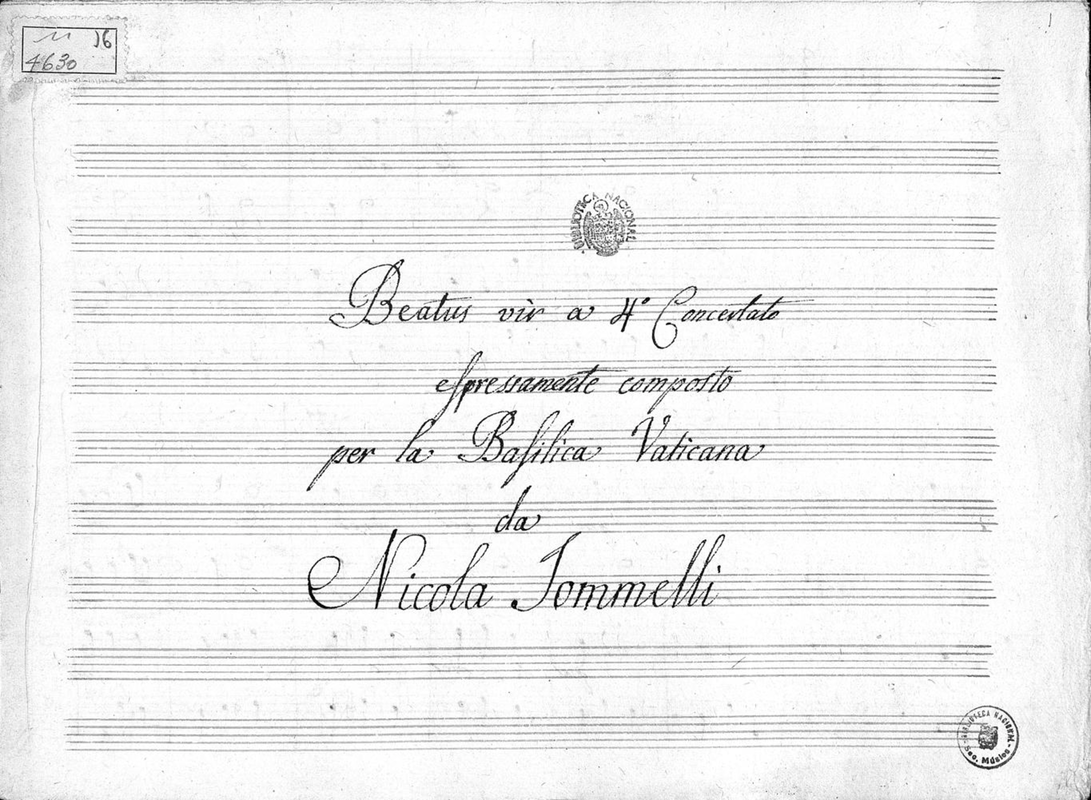 11 16
4630
1
BIBLIOTECA NACIONAL
Beatus vir a 4º Concertato
eſpressamente composto
per la Baſilica Vaticana
da
Nicola Jommelli
BIBLIOTECA NACIONAL
Sec. Música